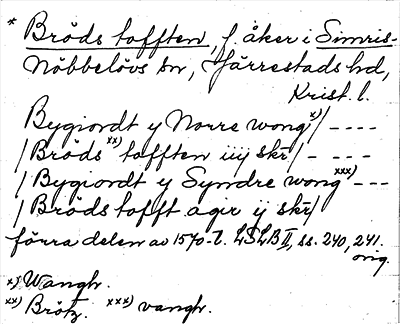 * Bröds tofften, f. åker i Simris-
Nöbbelövs sn, Järrestads hd,
Krist. l.
Bygiordt y Norre wong x)/ ----
/ Bröds xx) tofften iiij skr/ - ----
/ Bygiordt y Syndre wong xxx) ---
/ Bröds tofft agir ij skr/
förra delen av 1570-t. LSLB II, ss. 240, 241.
orig.
x) Wangh.
xx) Brötz. xxx) vangh.